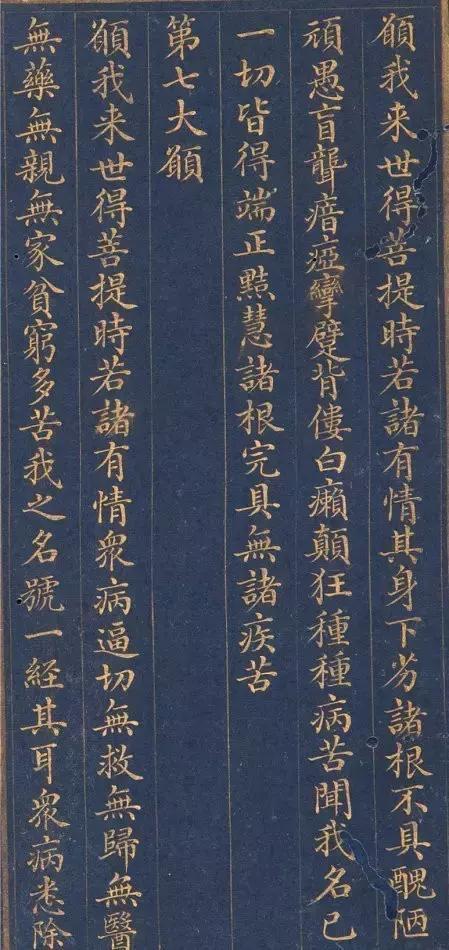 願我来世得菩提時若諸有情其身下劣諸根不具醜陋
頑愚盲聾瘖瘂攣躄背僂白癩顛狂種種病苦聞我名已
一切皆得端正黠慧諸根完具無諸疾苦
第七大願
願我来世得菩提時若諸有情衆病逼切無救無歸無醫
無藥無親無家貧窮多苦我之名號一経其耳衆病悉除